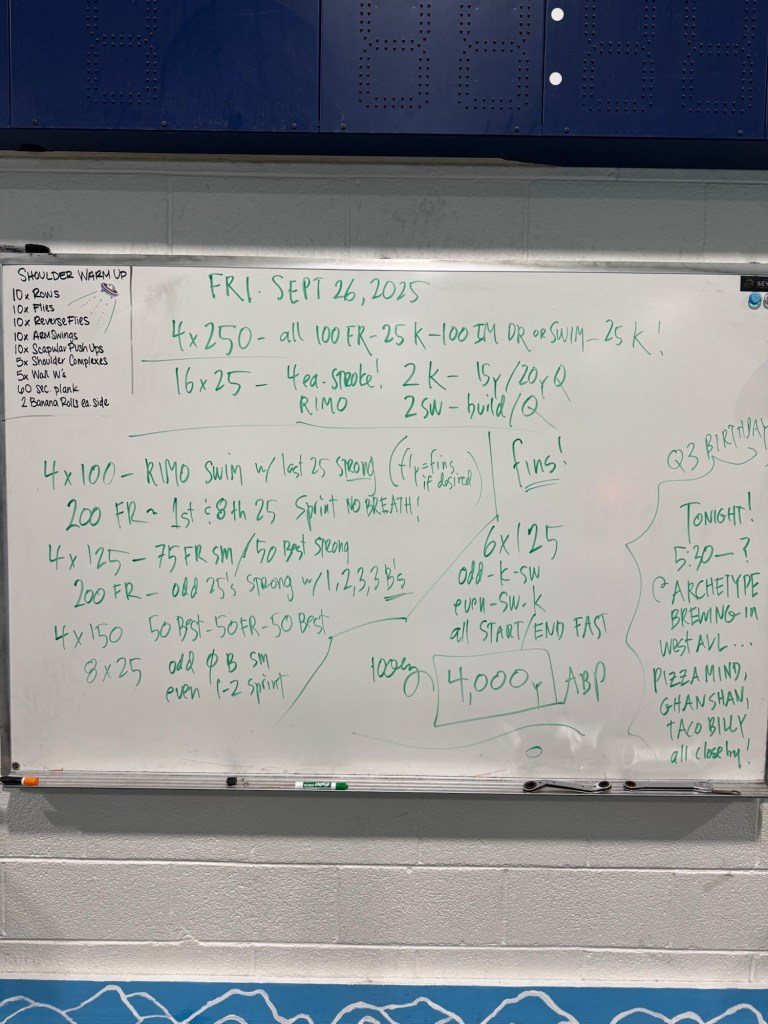 SHOULDER WARM UP
10x ROWS
10x Flies
10x Reverse Flies
10x ARM SWINGS
10x Scapular Push Ups
5x Shoulder Complexes
5x Wall W's
60 sec. plank
2 Banana Rolls ea. side
FRI. SEPT 26, 2025
4x250 - all 100 FR-25 K-100 IM DR or SWIM-25 K!
16x25 - 4 ea. stroke! 2 K - 15y/20y Q
RIMO 2 SW - build/Q
4x100 - RIMO Swim w/ last 25 strong (fly=fins if desired)
200 FR - 1st & 8th 25 Sprint NO BREATH!
4x125 - 75 FR sm/50 Best Strong
200 FR - odd 25's Strong w/ 1,2,3,3 B's
4x150 50 Best-50 FR-50 Best
8x25 odd ϕ B sm
even 1-2 sprint
fins!
6x125
odd-k-sw
even-sw-k
all START/END FAST
100 ez
4,000y ABP
Q3 BIRTHDAY
TONIGHT!
5:30-?
@ ARCHETYPE
BREWING in
West AVL...
PIZZA MIND,
GHAN SHAN,
TACO BILLY
all close by!